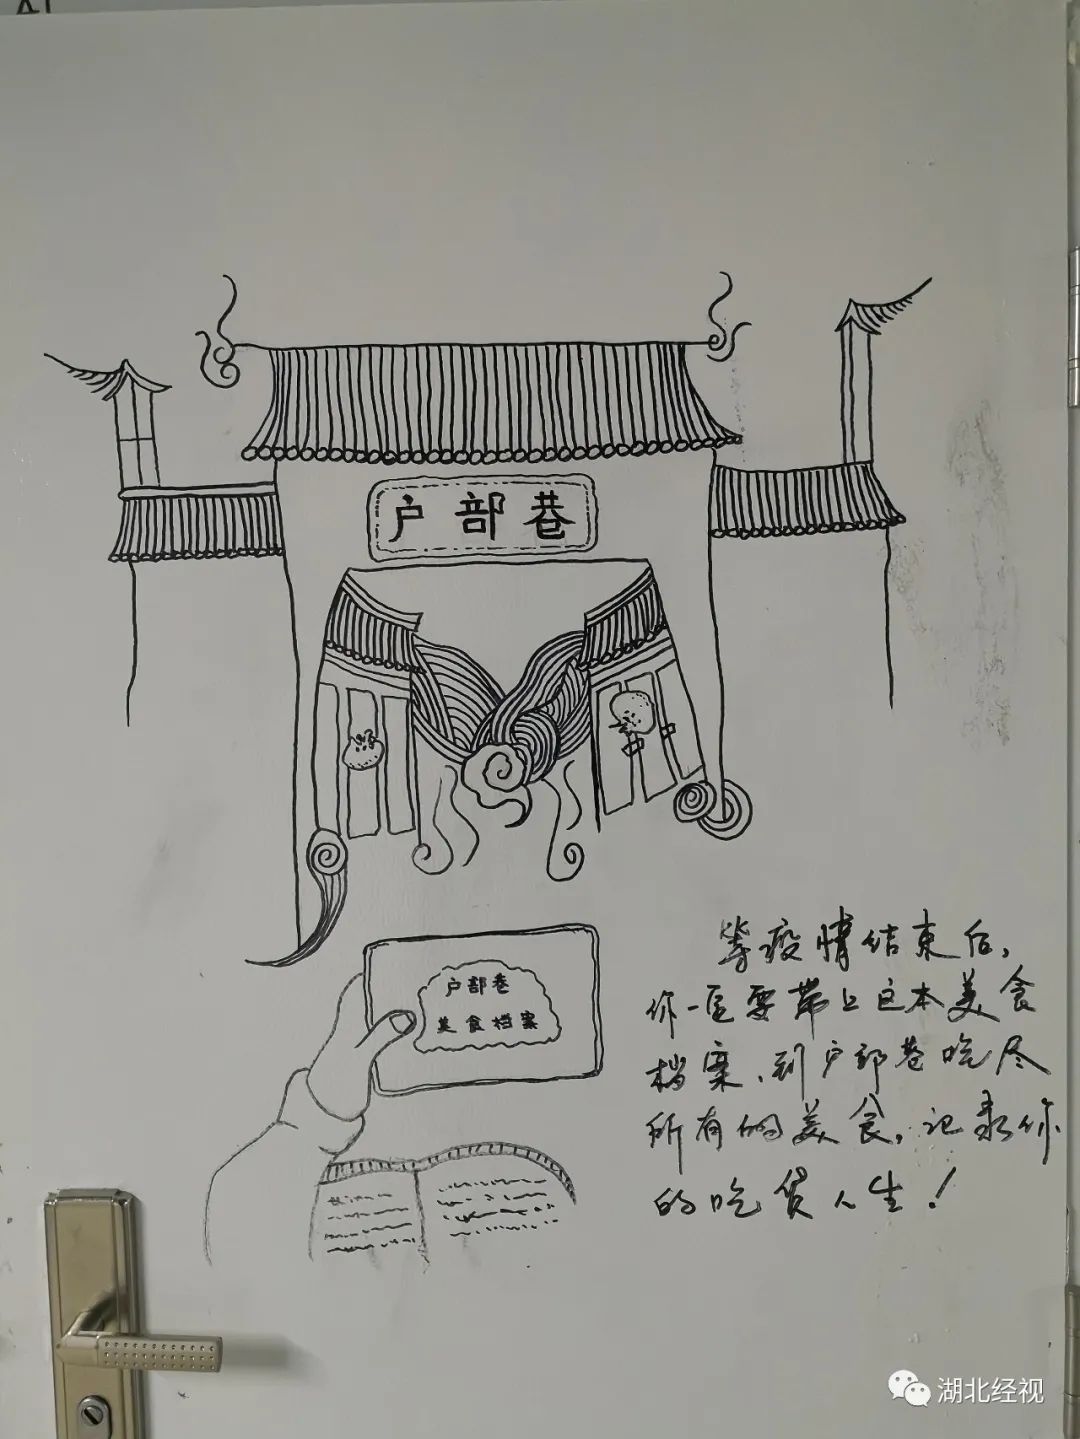 户部巷
户部巷
美食档案
等疫情结束后，
你一定要带上这本美食
档案、到户部巷吃尽
所有的美食，记录你
的吃货人生！
湖北经视